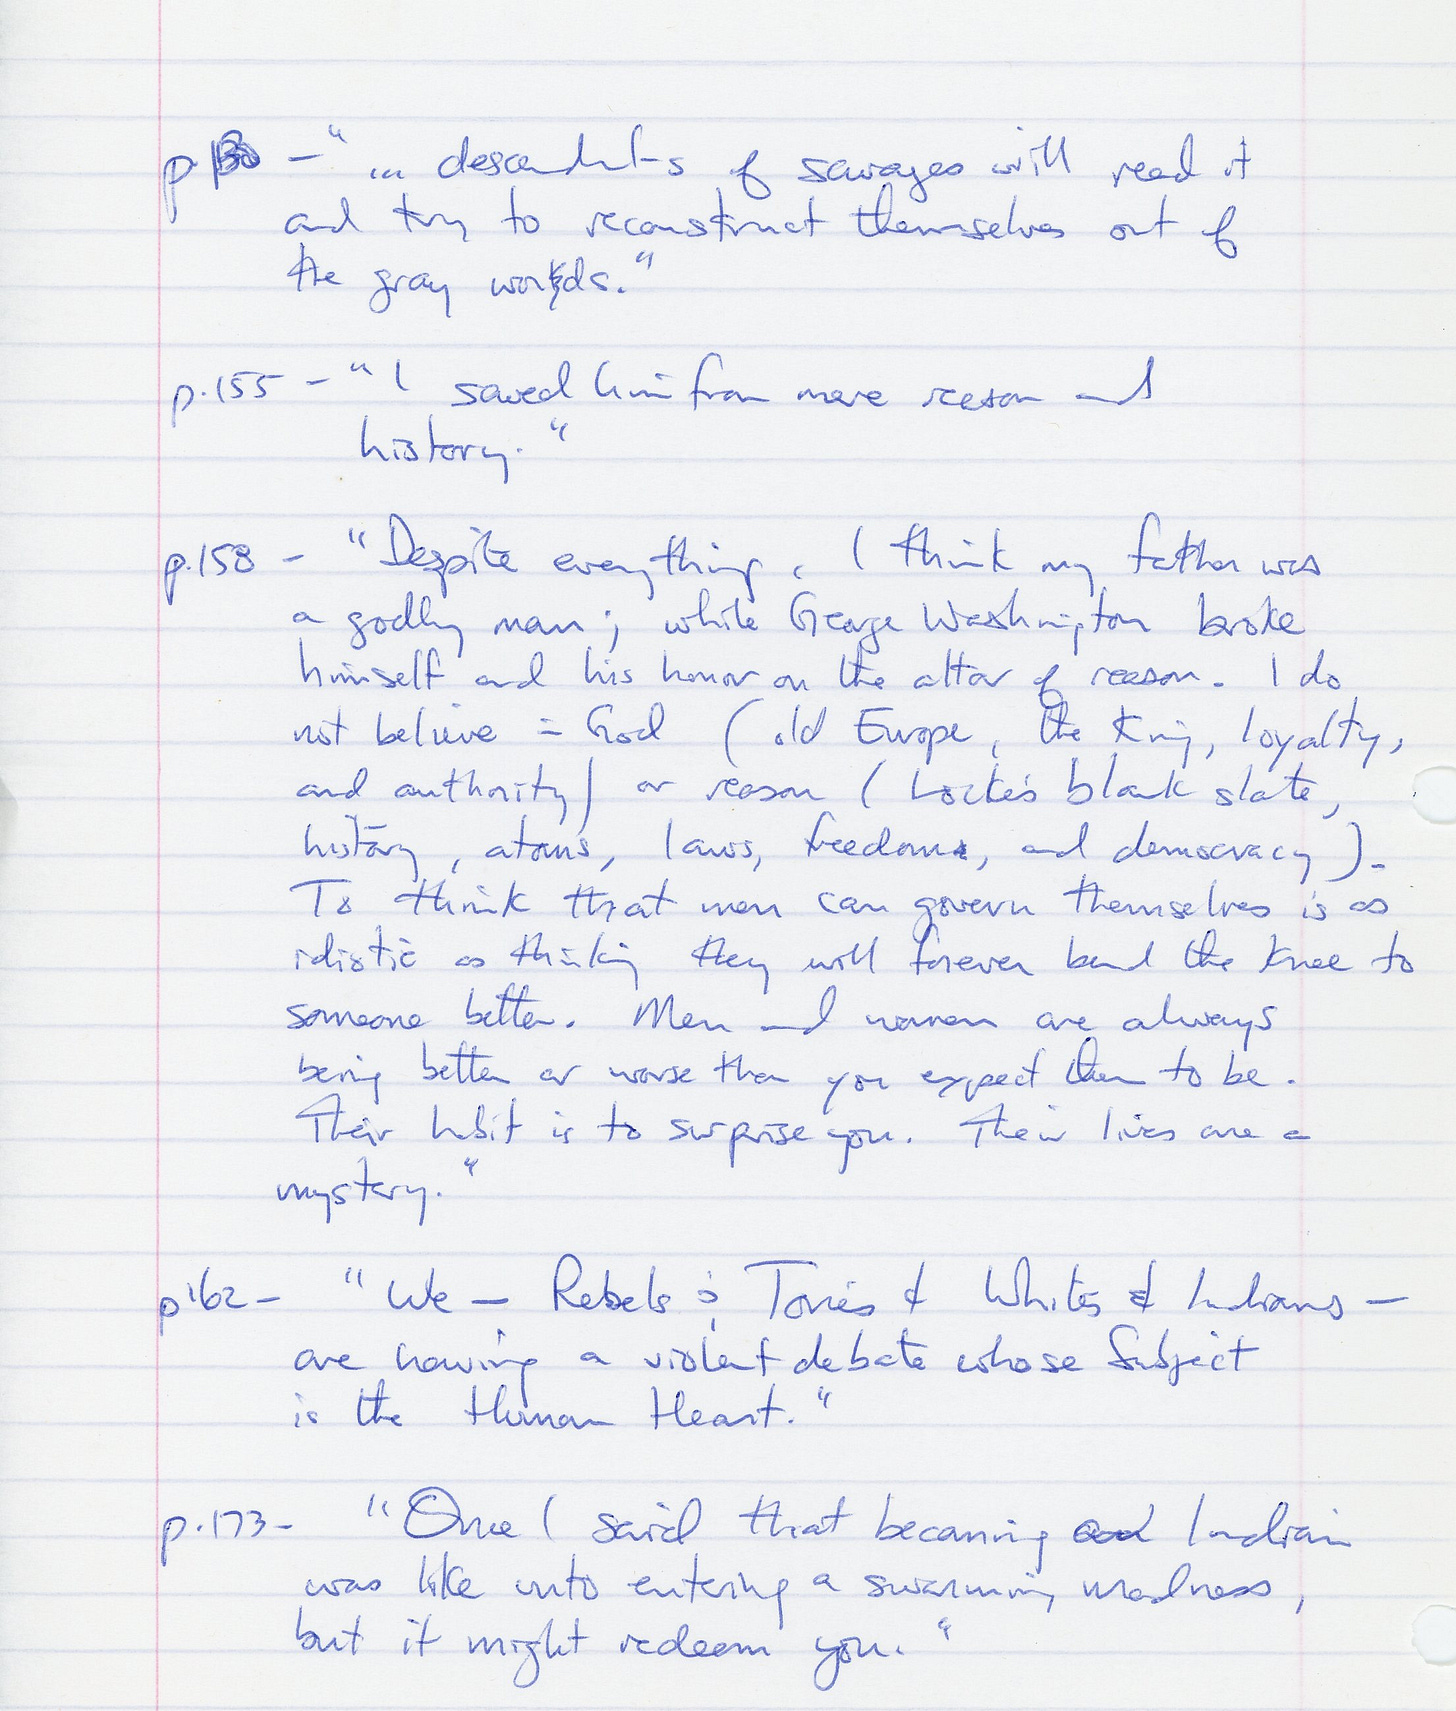 p 130 – "... descendants of savages will read it
and try to reconstruct themselves out of
the gray words."
p.155 – "I saved him from mere reason and
history."
p.158 – "Despite everything, I think my father was
a godly man; while George Washington broke
himself and his honor on the altar of reason. I do
not believe in God (old Europe, the King, loyalty,
and authority) or reason (Locke's blank slate,
history, atoms, laws, freedom, and democracy).
To think that men can govern themselves is as
idiotic as thinking they will forever bend the knee to
someone better. Men and women are always
being better or worse than you expect them to be.
Their habit is to surprise you. Their lives are a
mystery."
p162 – "We – Rebels & Tories & Whites & Indians –
are having a violent debate whose Subject
is the Human Heart."
p.173 – "Once I said that becoming an Indian
was like unto entering a swarming madness,
but it might redeem you."